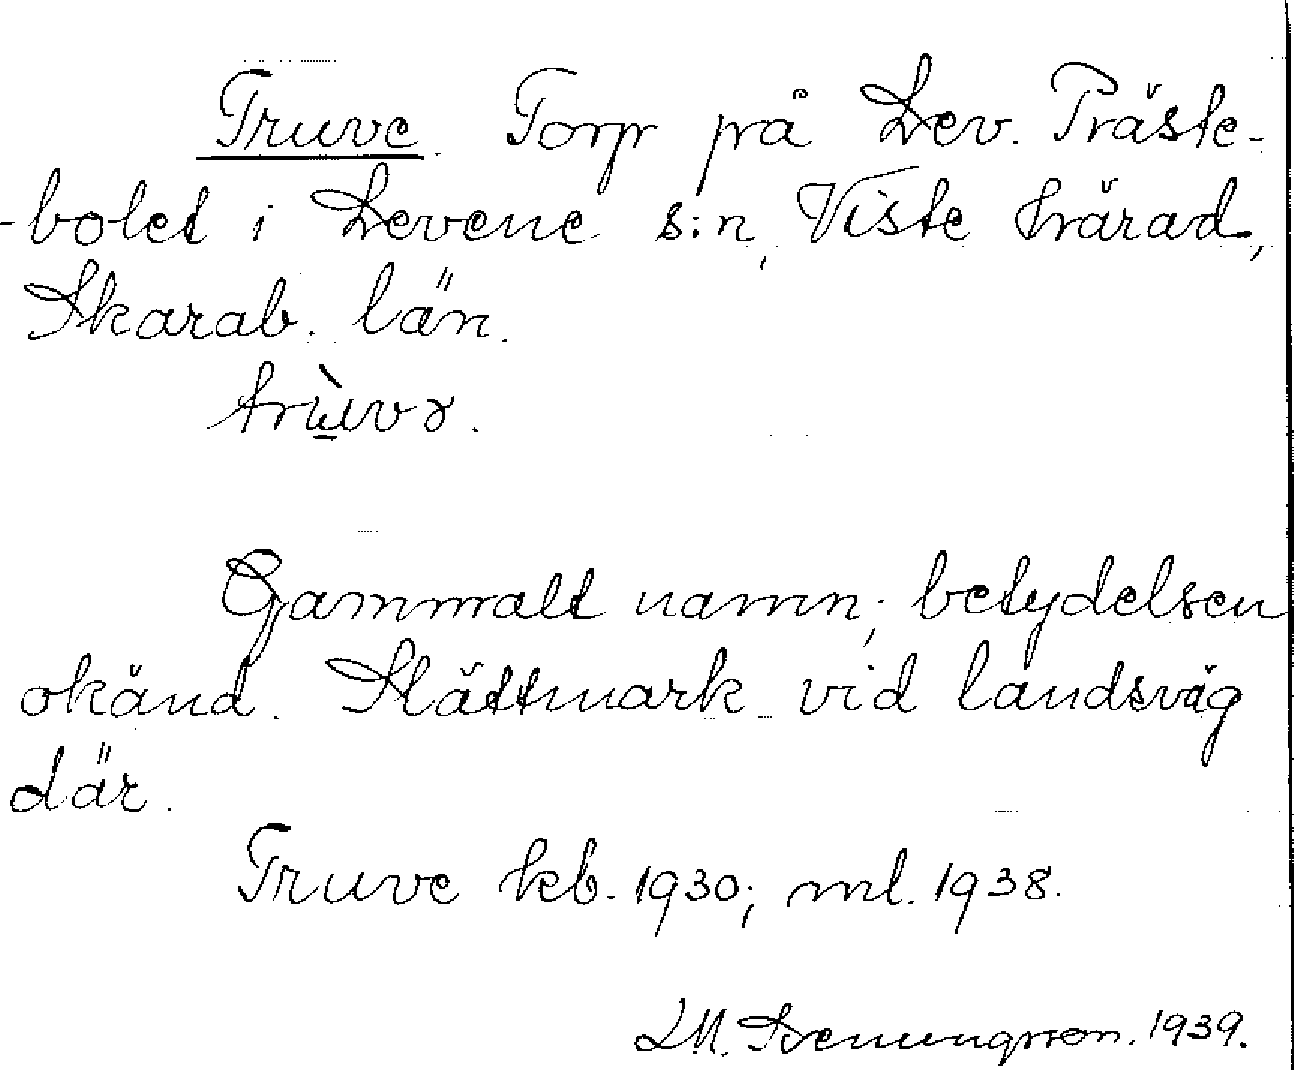 Truve. Torp på Lev. Präste-
-bolet i Levene s:n, Viste härad,
Skarab. län.
trùvɤ.
Gammalt namn; betydelsen
okänd. Slättmark vid landsväg
där.
Truve kb. 1930; ml. 1938.
1939.